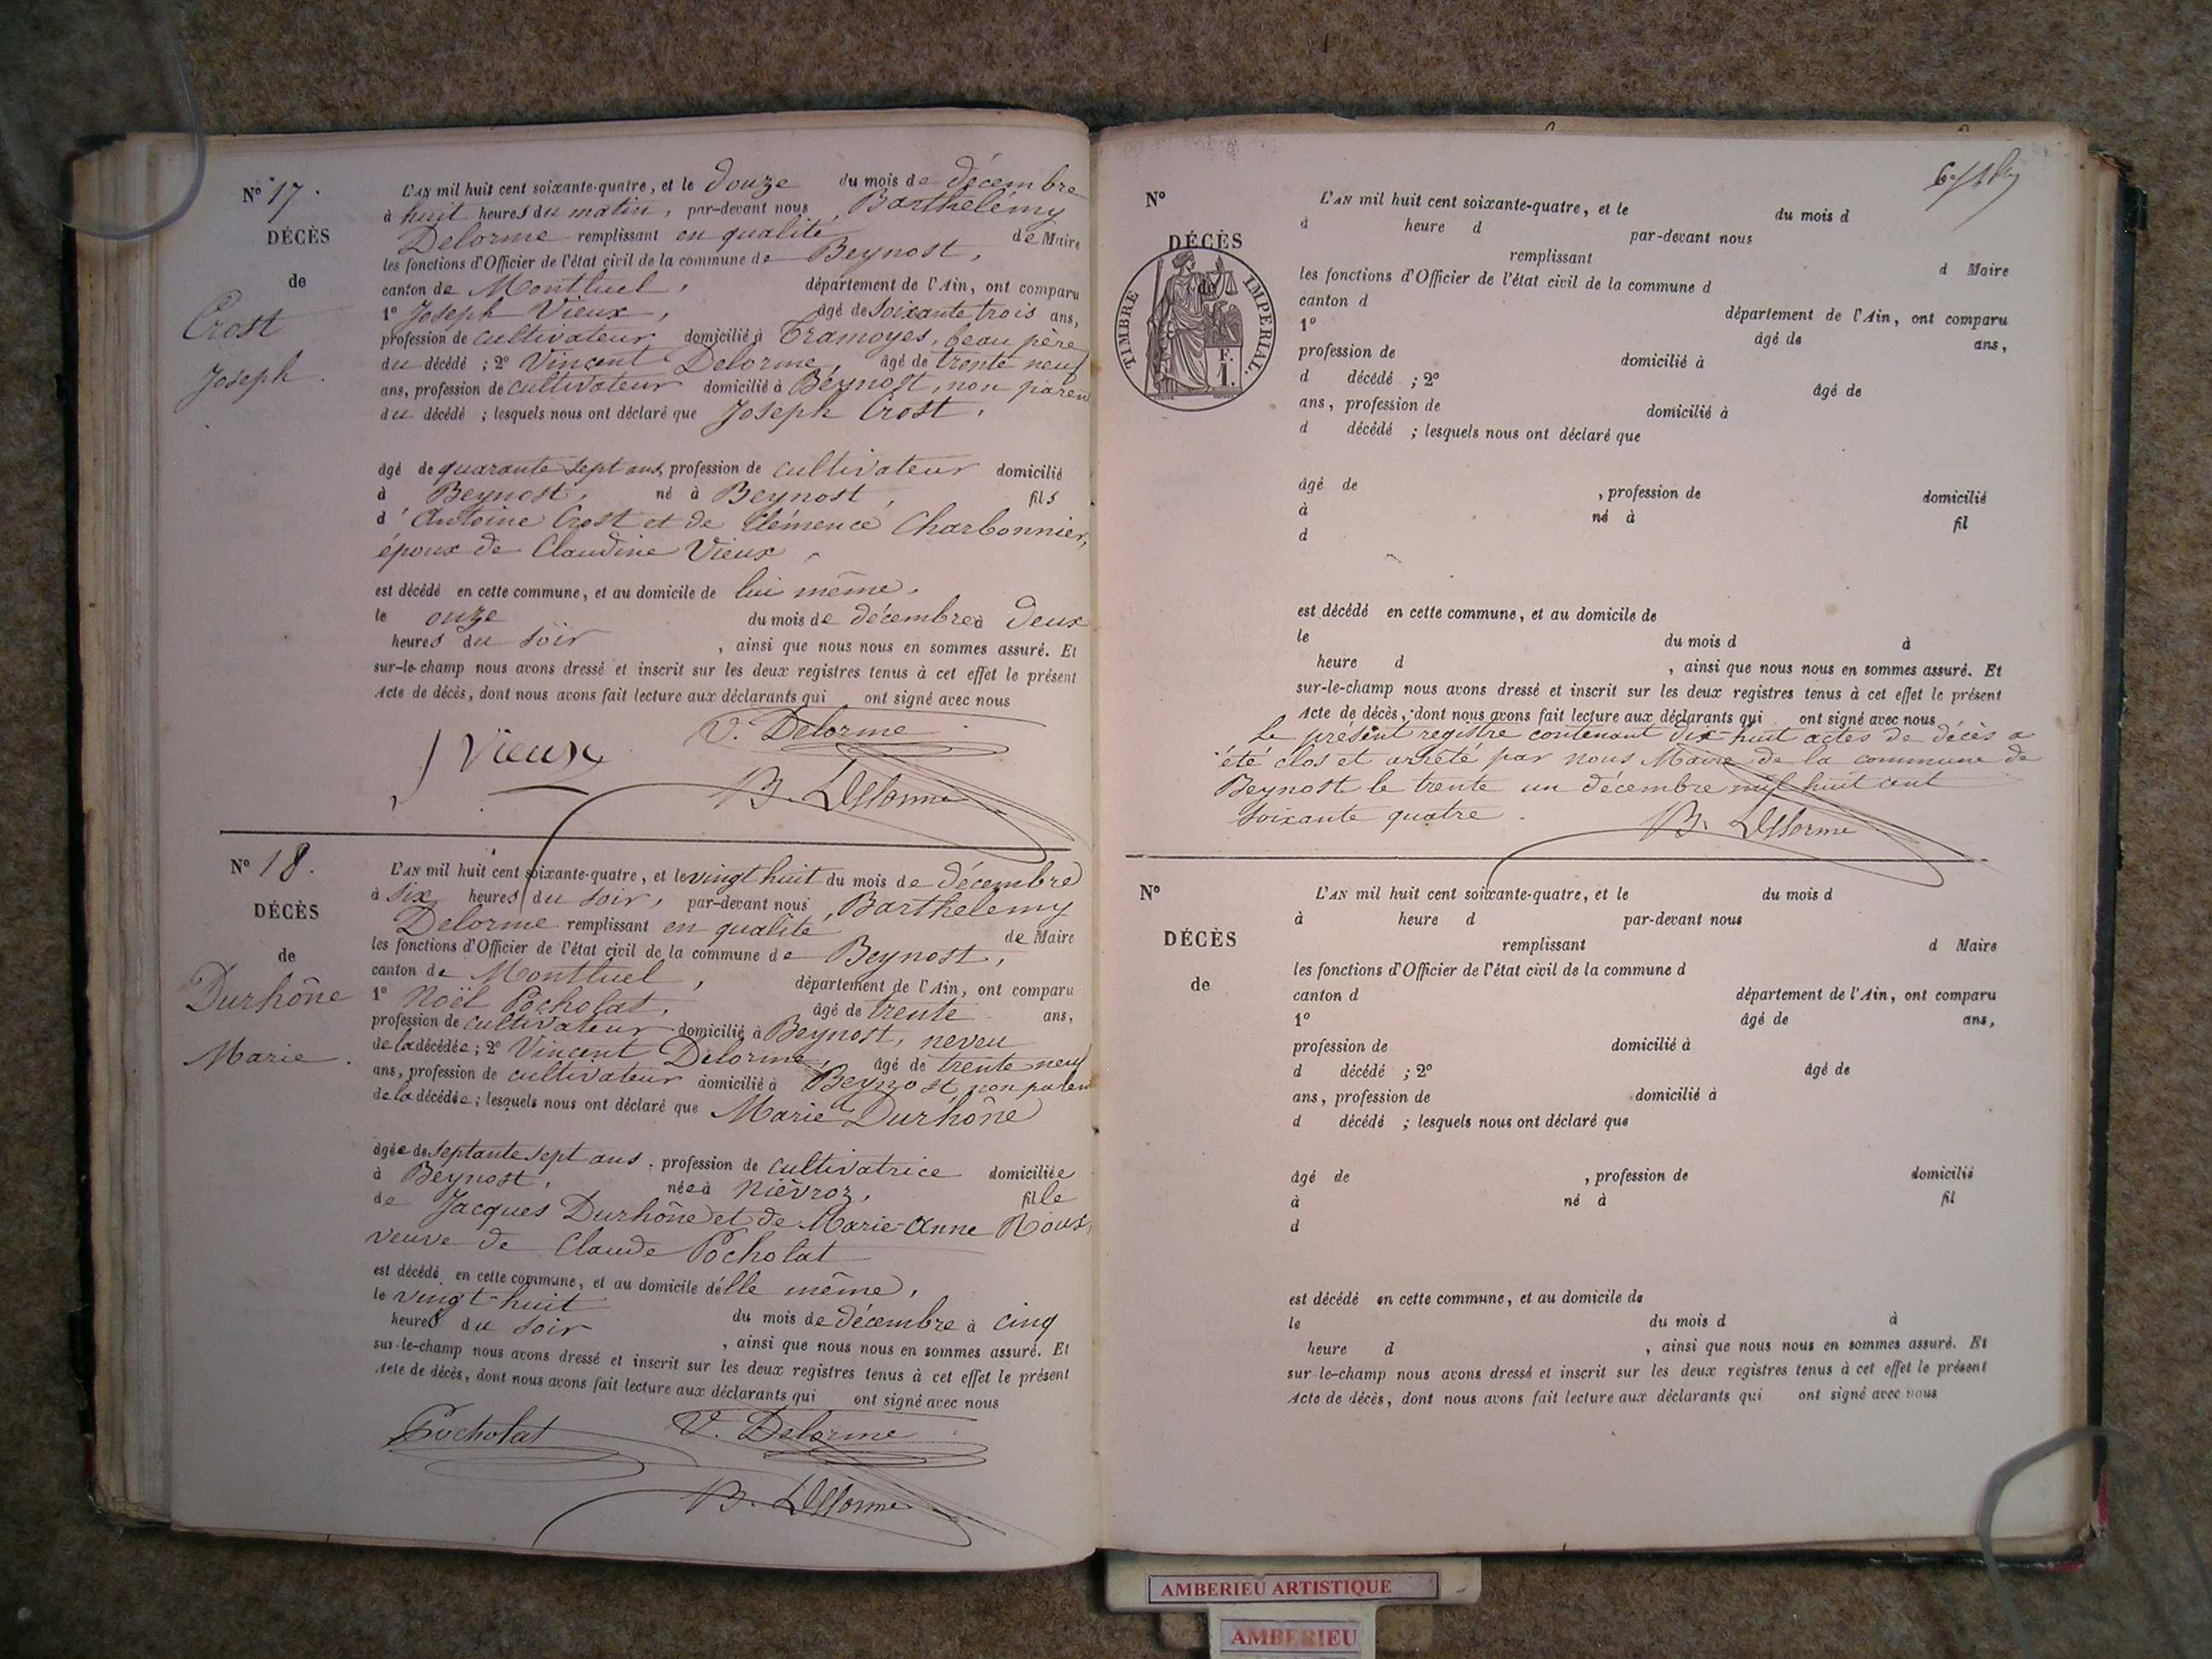 N° 17.
DÉCÈS
de
Crost
Joseph.
L'AN mil huit cent soixante-quatre, et le douze du mois de décembre
à huit heures du matin, par-devant nous, Barthélémy
Delorme remplissant en qualité de Maire
les fonctions d'Officier de l'état civil de la commune de Beynost,
canton de Montluel, département de l'Ain, ont comparu
1° Joseph Vieux, âgé de soixante trois ans,
profession de cultivateur domicilié à Tramoyes, beau père
du décédé ; 2° Vincent Delorme, âgé de trente neuf
ans, profession de cultivateur domicilié à Beynost, non paren
du décédé ; lesquels nous ont déclaré que Joseph Crost,
âgé de quarante sept ans, profession de cultivateur domicilié
à Beynost, né à Beynost, fils
d'Antoine Crost et de Clémence Charbonnier,
époux de Claudine Vieux,
est décédé en cette commune, et au domicile de lui même,
le onze du mois de décembre à deux
heures du soir, ainsi que nous nous en sommes assuré. Et
sur-le-champ nous avons dressé et inscrit sur les deux registres tenus à cet effet le présent
Acte de décès, dont nous avons fait lecture aux déclarants qui ont signé avec nous
J Vieux V. Delorme
B. Delorme
N° 18.
DÉCÈS
de
Durhône
Marie.
L'AN mil huit cent soixante-quatre, et le vingt huit du mois de décembre
à six heures du soir, par-devant nous, Barthélemy
Delorme remplissant en qualité de Maire
les fonctions d'Officier de l'état civil de la commune de Beynost,
canton de Montluel, département de l'Ain, ont comparu
1° Noël Pocholat, âgé de trente ans,
profession de cultivateur domicilié à Beynost, neveu
de la décédée ; 2° Vincent Delorme, âgé de trente neuf
ans, profession de cultivateur domicilié à Beynost, non paren
de la décédée ; lesquels nous ont déclaré que Marie Durhône
âgée de septante sept ans, profession de cultivatrice domiciliée
à Beynost, née à Nièvroz, fille
de Jacques Durhône et de Marie-Anne Roux,
veuve de Claude Pocholat
est décédé en cette commune, et au domicile d'elle même,
le vingt-huit du mois de décembre à cinq
heures du soir, ainsi que nous nous en sommes assuré. Et
sur-le-champ nous avons dressé et inscrit sur les deux registres tenus à cet effet le présent
Acte de décès, dont nous avons fait lecture aux déclarants qui ont signé avec nous
Pocholat V. Delorme
B. Delorme
N°
DÉCÈS
de
TIMBRE IMPERIAL.
F.
1.
L'AN mil huit cent soixante-quatre, et le du mois d
à heure d par-devant nous
remplissant d Maire
les fonctions d'Officier de l'état civil de la commune d
canton d département de l'Ain, ont comparu
1° âgé de ans,
profession de domicilié à
d décédé ; 2° âgé de
ans, profession de domicilié à
d décédé ; lesquels nous ont déclaré que
âgé de , profession de domicilié
à né à fil
d
est décédé en cette commune, et au domicile de
le du mois d à
heure d , ainsi que nous nous en sommes assuré. Et
sur-le-champ nous avons dressé et inscrit sur les deux registres tenus à cet effet le présent
Acte de décès, dont nous avons fait lecture aux déclarants qui ont signé avec nous
Le présent registre contenant dix-huit actes de décès a
été clos et arrêté par nous Maire de la commune de
Beynost le trente un décembre mil huit cent
soixante quatre.
B. Delorme
N°
DÉCÈS
de
L'AN mil huit cent soixante-quatre, et le du mois d
à heure d par-devant nous
remplissant d Maire
les fonctions d'Officier de l'état civil de la commune d
canton d département de l'Ain, ont comparu
1° âgé de ans,
profession de domicilié à
d décédé ; 2° âgé de
ans, profession de domicilié à
d décédé ; lesquels nous ont déclaré que
âgé de , profession de domicilié
à né à fil
d
est décédé en cette commune, et au domicile de
le du mois d à
heure d , ainsi que nous nous en sommes assuré. Et
sur-le-champ nous avons dressé et inscrit sur les deux registres tenus à cet effet le présent
Acte de décès, dont nous avons fait lecture aux déclarants qui ont signé avec nous
AMBERIEU ARTISTIQUE
AMBERIEU